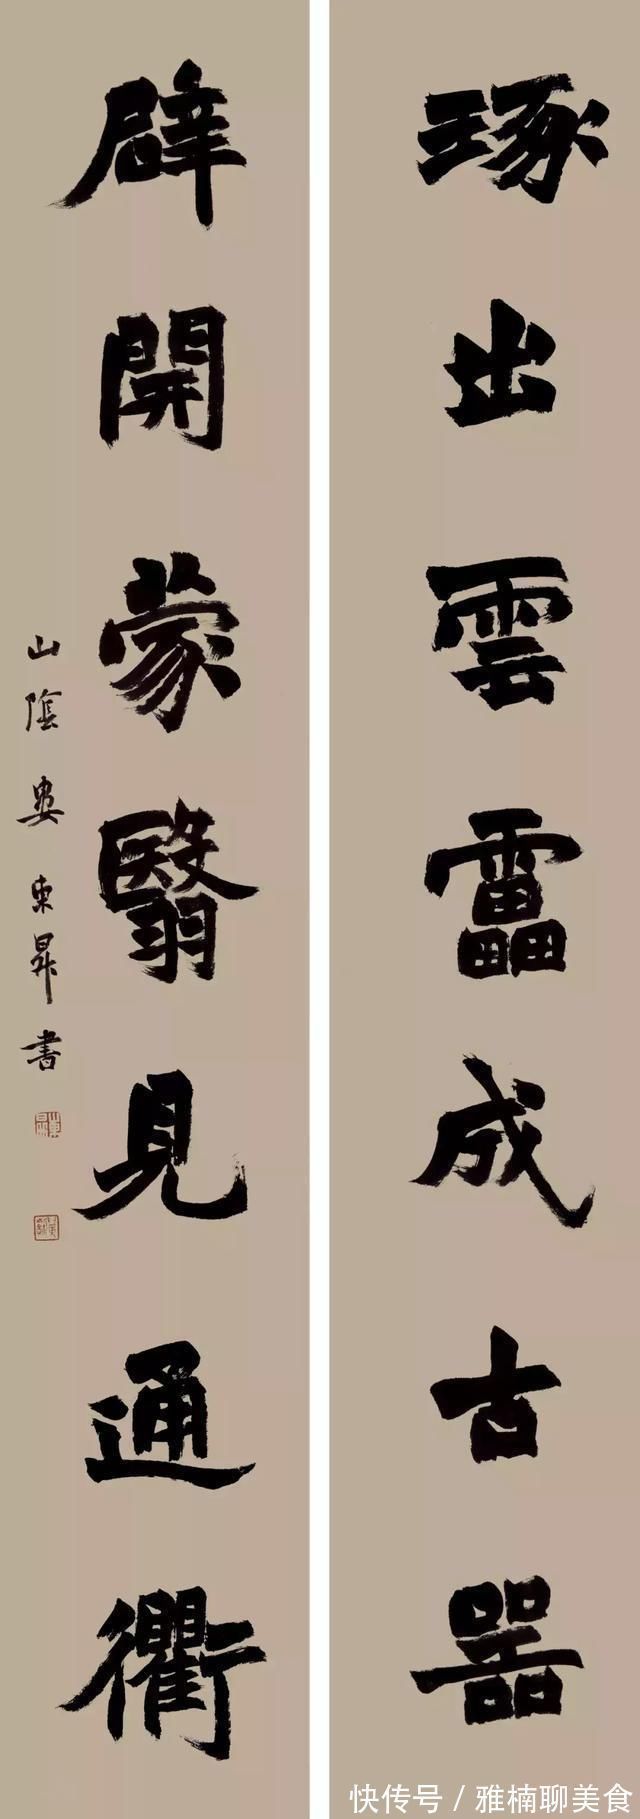 琢出雲靁成古器
辟開蒙翳見通衢
山陰婁東昇書
快传号/雅楠聊美食